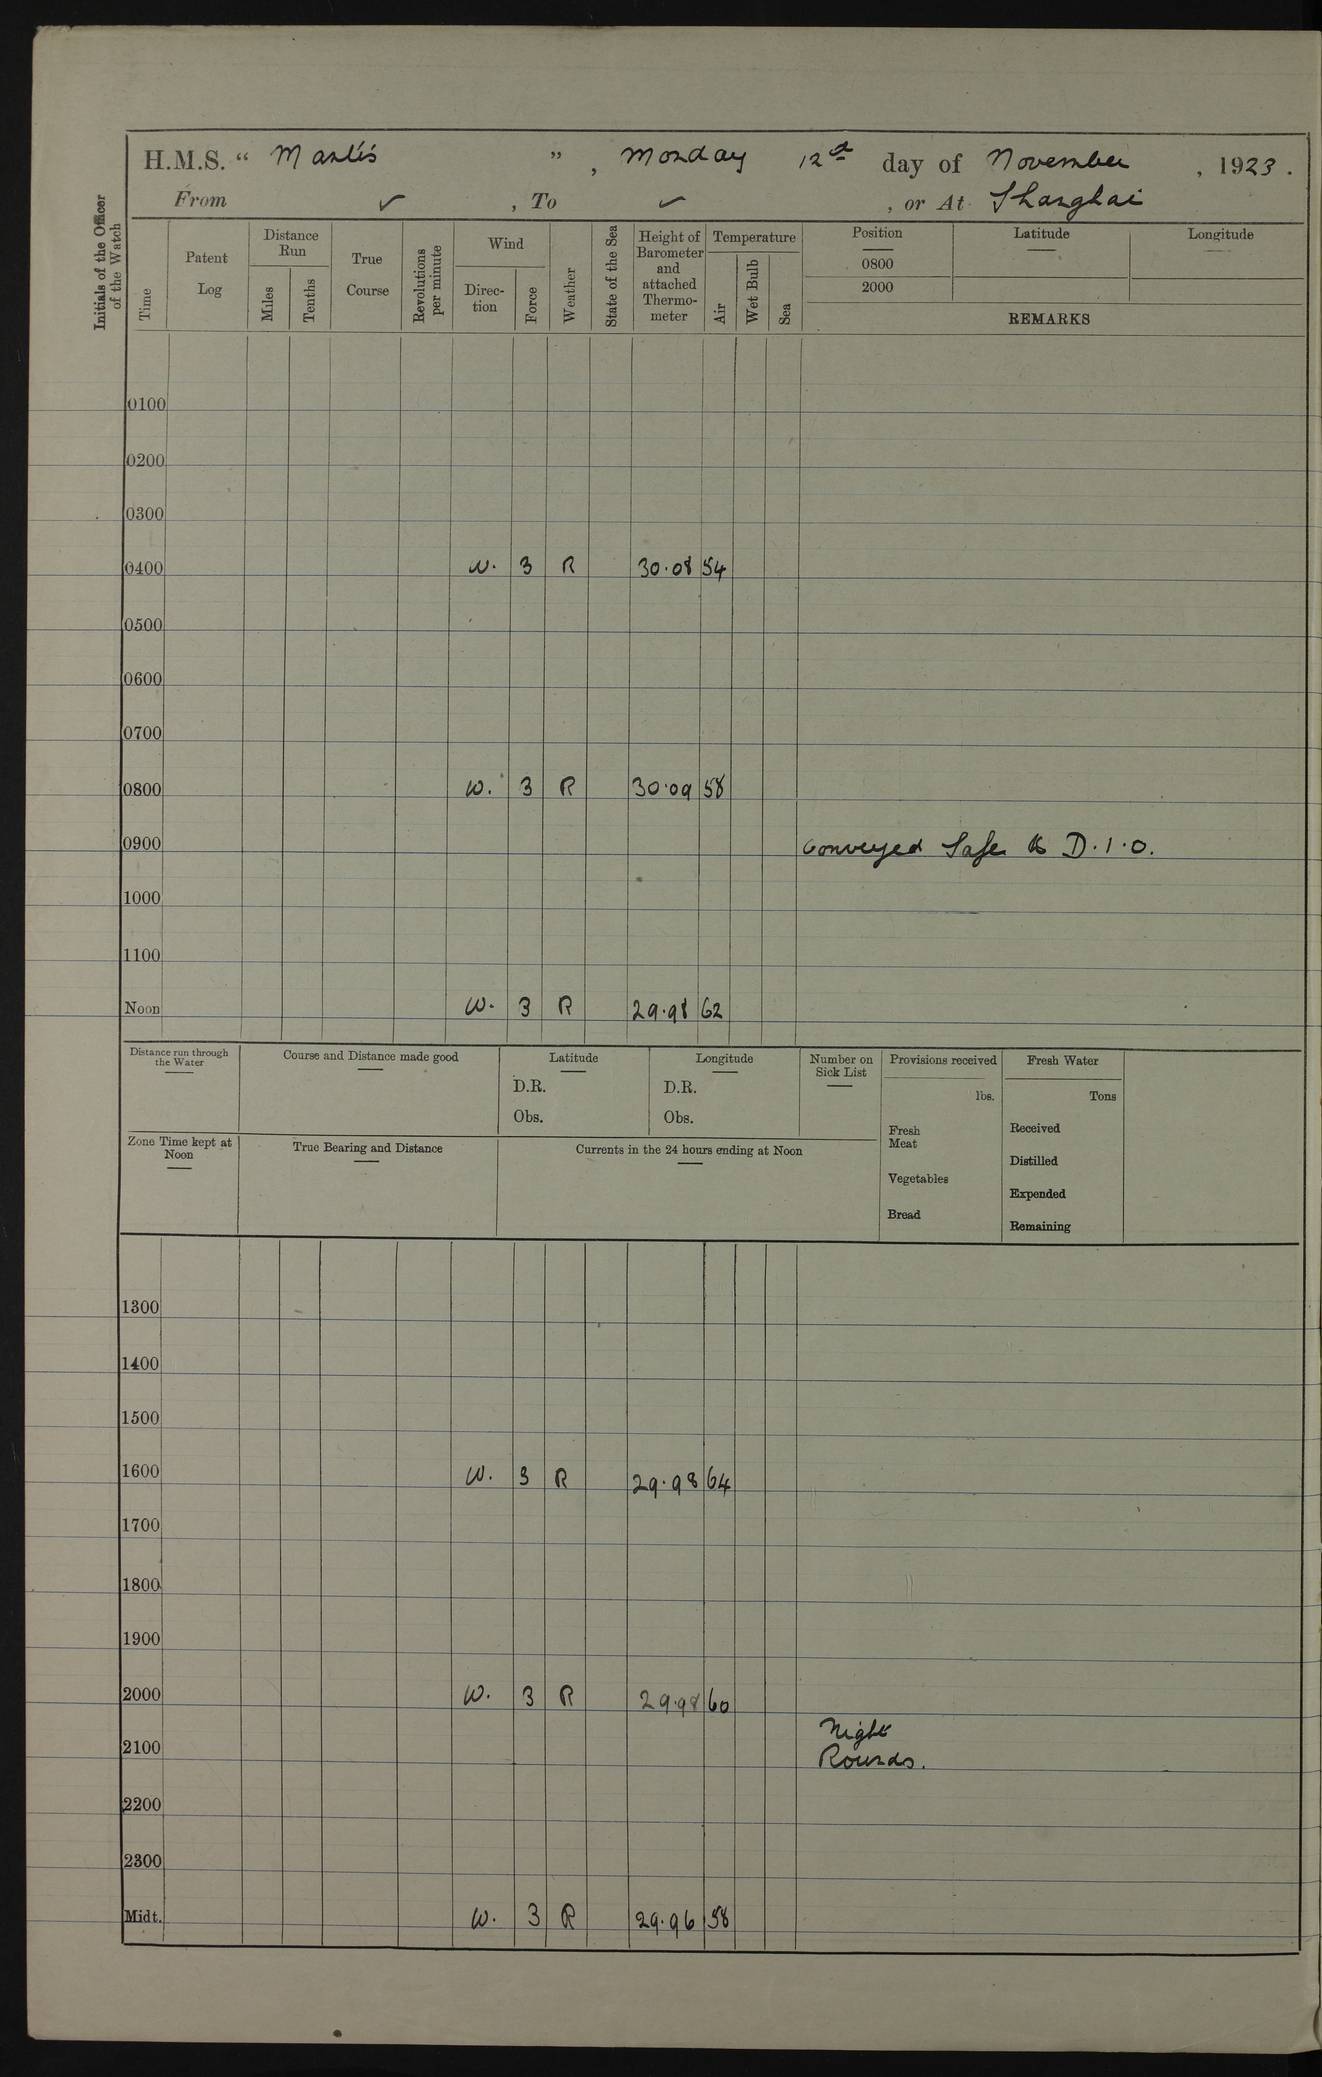 H.M.S. “ Mantis ” , Monday 12th day of November , 1923 .
From ✓ , To ✓ , or At Shanghai
Initials of the Officer of the Watch
Time
Patent Log
Distance Run
Miles
Tenths
True Course
Revolutions per minute
Wind
Direc-tion
Force
Weather
State of the Sea
Height of Barometer and attached Thermo-meter
Temperature
Air
Wet Bulb
Sea
Position
Latitude
Longitude
0800
2000
REMARKS
0100
0200
0300
0400 W. 3 R 30.08 54
0500
0600
0700
0800 W. 3 R 30.09 58
0900 Conveyed Safe to D.I.O.
1000
1100
Noon W. 3 R 29.98 62
Distance run through the Water
Course and Distance made good
Latitude
D.R.
Obs.
Longitude
D.R.
Obs.
Number on Sick List
Provisions received
lbs.
Fresh Meat
Vegetables
Bread
Fresh Water
Tons
Received
Distilled
Expended
Remaining
Zone Time kept at Noon
True Bearing and Distance
Currents in the 24 hours ending at Noon
1300
1400
1500
1600 W. 3 R 29.98 64
1700
1800
1900
2000 W. 3 R 29.98 60
Night
2100 Rounds.
2200
2300
Midt. W. 3 R 29.96 58